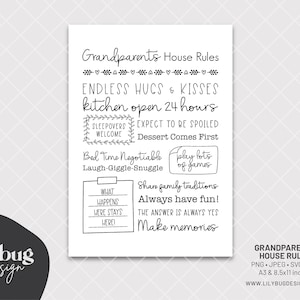 Grandparents House Rules
ENDLESS HUGS & KISSES
kitchen open 24 hours
SLEEPOVERS
WELCOME
EXPECT TO BE SPOILED
Dessert Comes First
Bed Time Negotiable
Laugh-Giggle-Snuggle
play lots
of games
WHAT
HAPPENS
HERE STAYS
HERE!
Share family traditions
Always have fun!
THE ANSWER IS ALWAYS YES
Make memories
bug
sign
GRANDPARE
HOUSE RUL
PNG • JPEG • SV
A3 & 8.5x11 inc
WWW.LILYBUGDESIGN